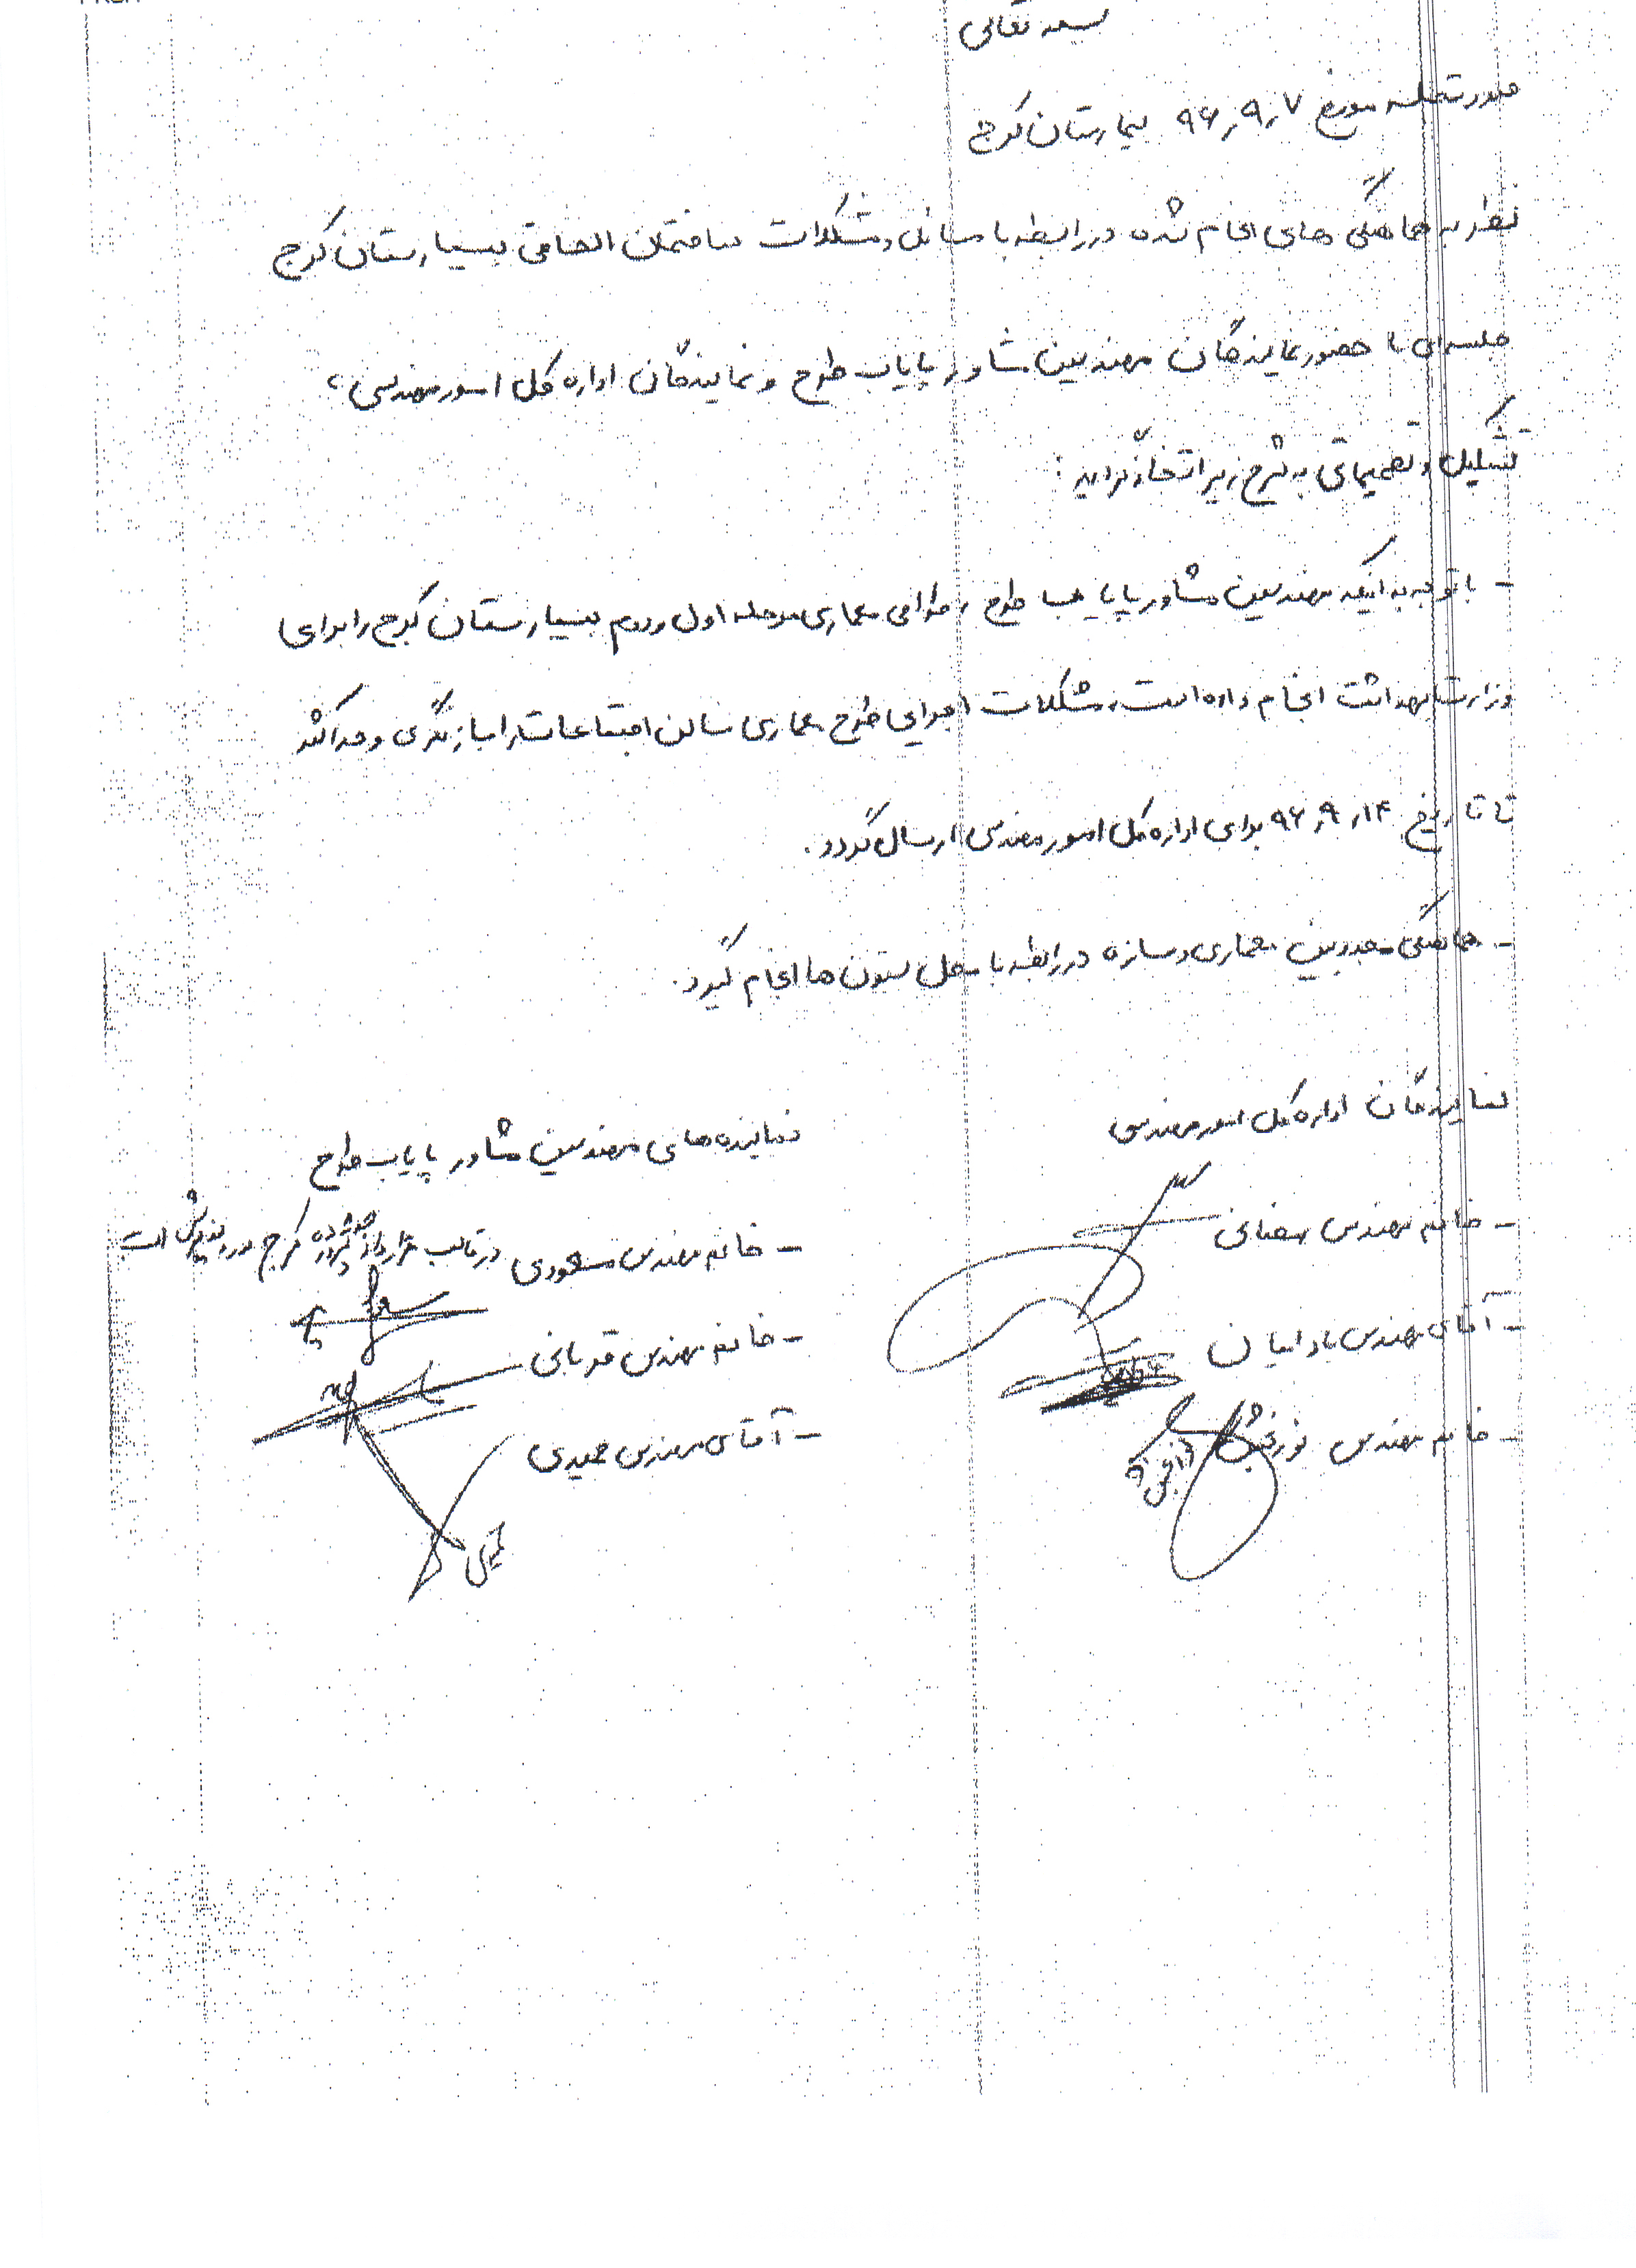 بسمه تعالی
صورتجلسه مورخ ۹۶٫۹٫۷ بیمارستان کرج
نظر به هماهنگی های انجام شده در رابطه با مسائل و مشکلات ساختمان الحاقی بیمارستان کرج
جلسه‌ای با حضور نمایندگان مهندسین مشاور پایاب طرح و نمایندگان اداره کل امور مهندسی،
تشکیل و تصمیماتی به شرح زیر اتخاذ گردید :
- با توجه به اینکه مهندسین مشاور پایاب طرح، طراحی معماری مرحله اول و دوم بیمارستان کرج را برای
وزارت بهداشت انجام داده است، مشکلات اجرایی طرح معماری سالن اجتماعات را بازنگری و حداکثر
تا تاریخ ۹۶٫۹٫۱۴ برای اداره کل امور مهندسی ارسال گردد.
- هماهنگی مجدد بین معماری و سازه در رابطه با محل ستون ها انجام گیرد.
نمایندگان اداره کل امور مهندسی
- خانم مهندس
- آقای مهندس
- خانم مهندس نوربخش
نماینده های مهندسین مشاور پایاب طرح
- خانم مهندس مسعودی در قالب قرارداد کرج مورد پذیرش است
- خانم مهندس قربانی
- آقای مهندس حمیدی